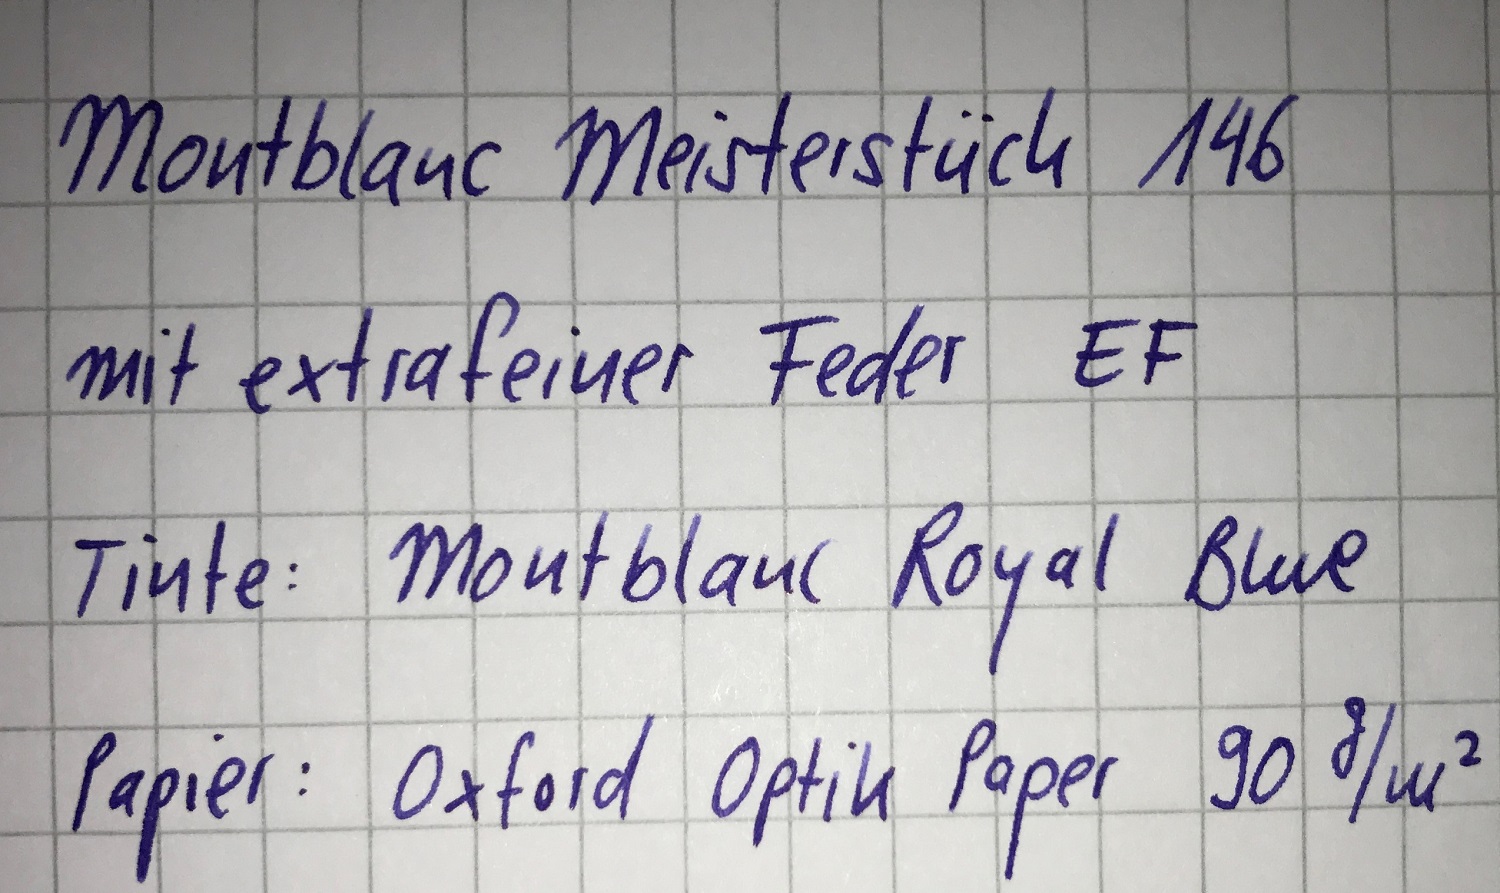 Montblanc Meisterstück 146
mit extrafeiner Feder EF
Tinte: Montblanc Royal Blue
Papier: Oxford Optik Paper 90 g/m²